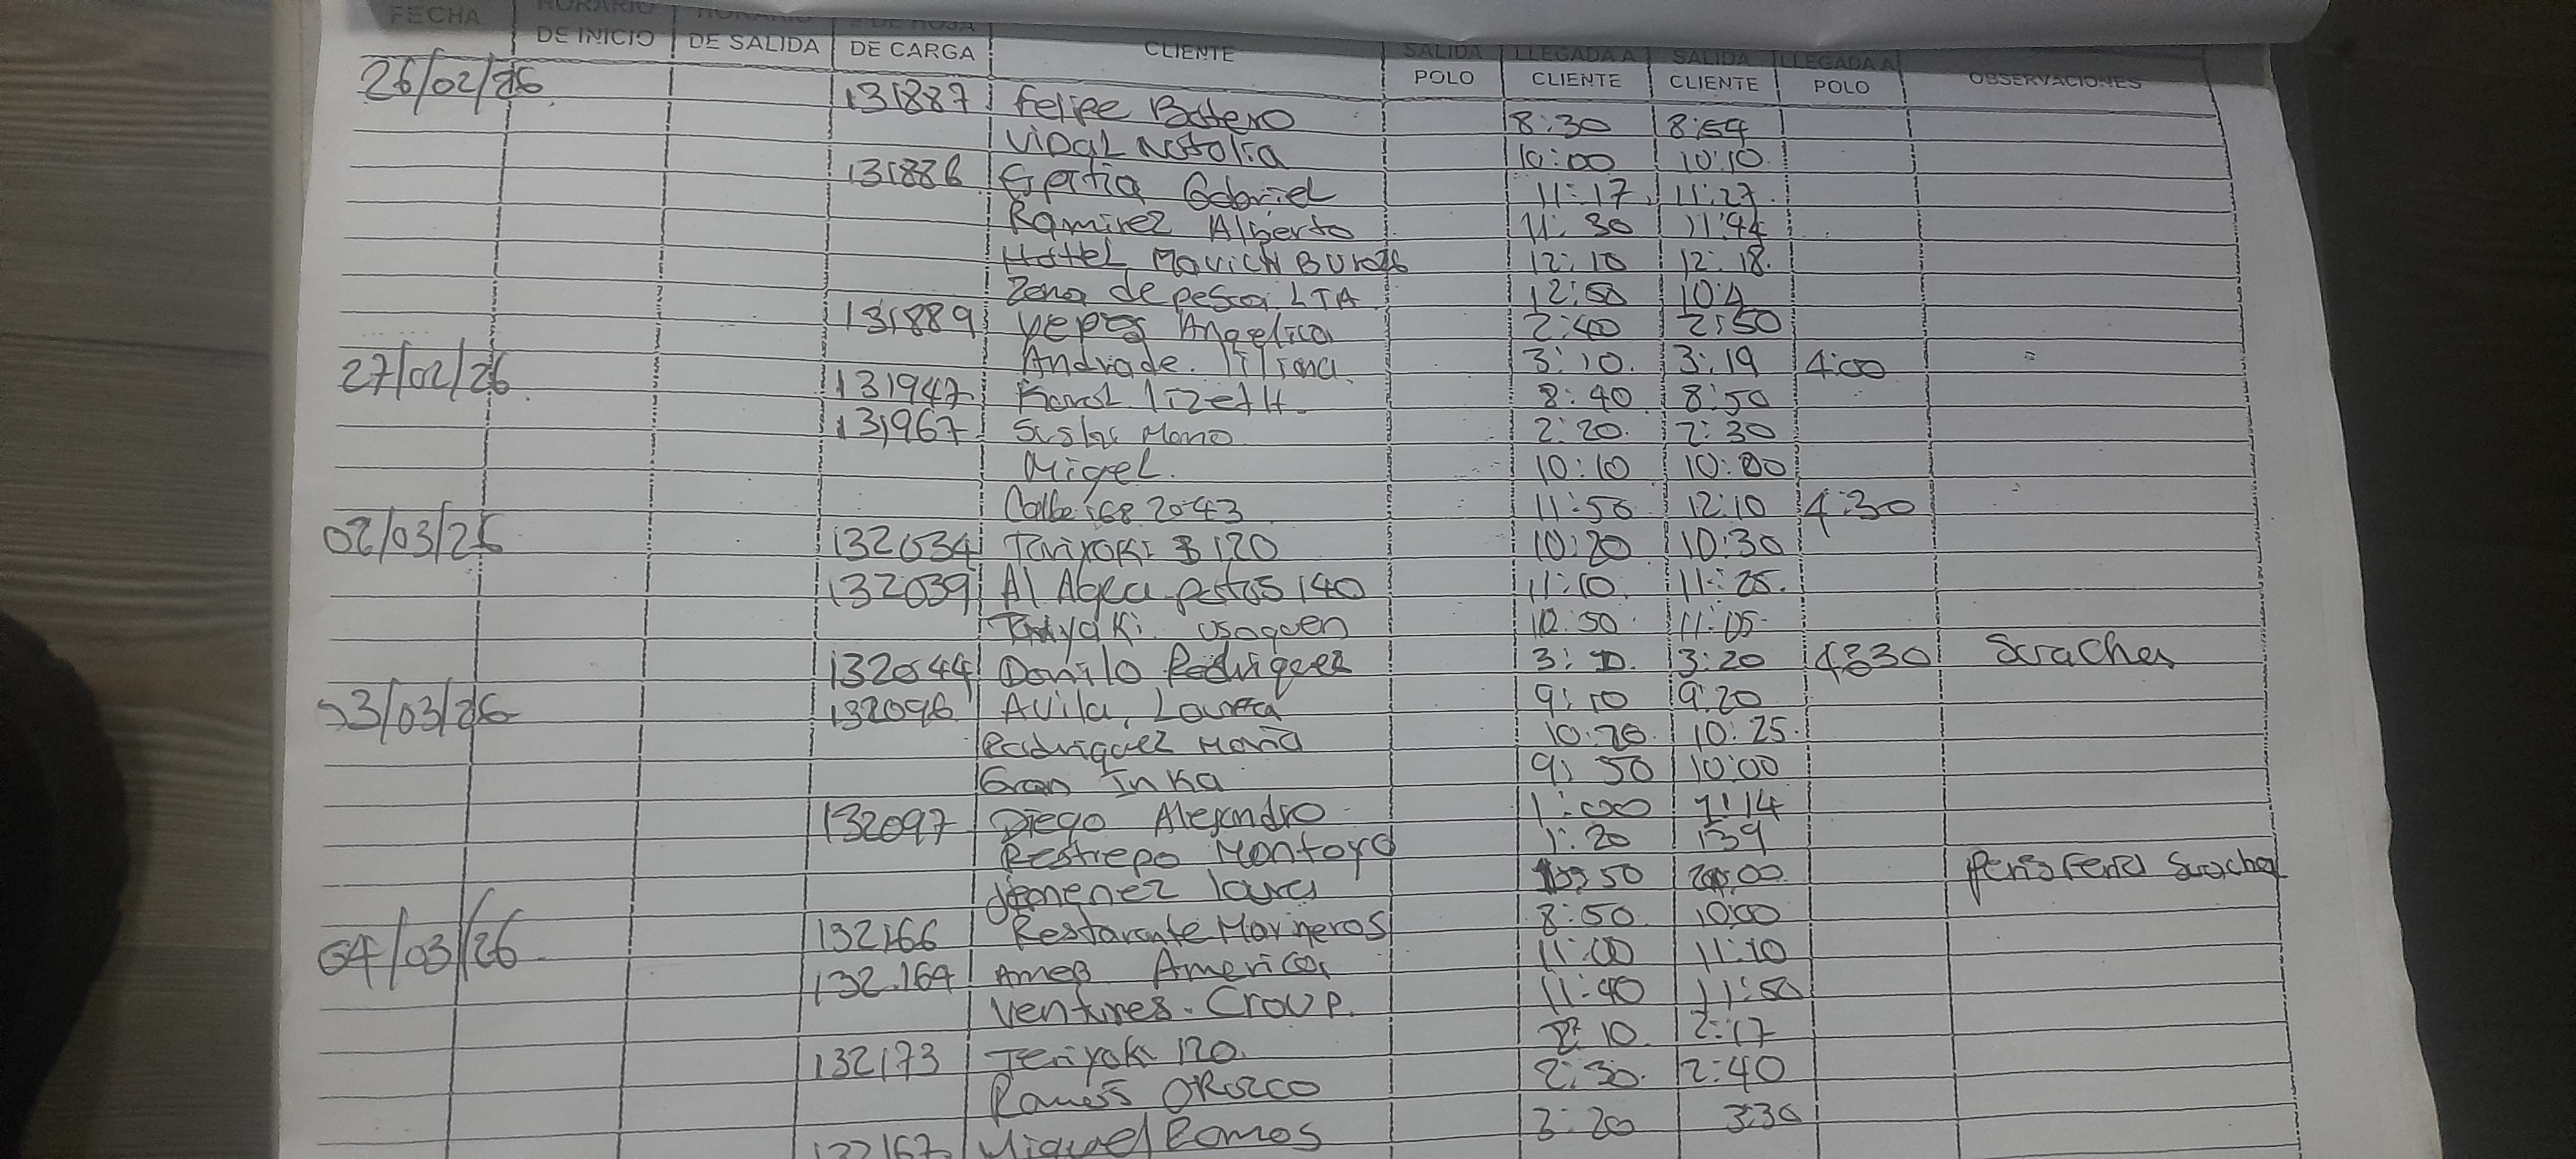 FECHA HORARIO DE INICIO HORARIO DE SALIDA # DE HOJA DE CARGA CLIENTE SALIDA POLO LLEGADA A CLIENTE SALIDA CLIENTE LLEGADA A POLO OBSERVACIONES
26/02/26 131887 Felipe Botero 8:30 8:54
Vidal Natalia 10:00 10:10
131886 Gabriel 11:17 11:27
Ramirez Alberto 11:30 11:44
Hottel Movich 12:10 12:18
Zona de pesca LTA 12:50
131889 Yepes Angelica 2:40 2:50
Andrade 3:10 3:19 4:00
27/02/26 131947 Karol lizeth 8:40 8:50
131967 2:20 2:30
Migel 10:10
Calle 168 20-43 11:50 12:10 4:30
02/03/26 132034 120 10:20 10:30
132039 140 11:10 11:25
Usaquen 10:50 11:05
132044 Danilo Rodriguez 3:20 4:30
03/03/26 132096 Avila, 9:10 9:20
Rodriguez Maria 10:20 10:25
Gran Inka 9:50 10:00
132097 Diego Alejandro 1:00 1:14
Restrepo Montoya 1:20 1:39
Jimenez 50
04/03/26 132166 Restarante Marineros 8:50 10:00
132.164 America 11:00 11:10
Ventures. Croup. 11:40 11:50
132173 Teriyaki 120. 2:10 2:17
Orozco 2:30 2:40
Miguel Ramos 3:20 3:30